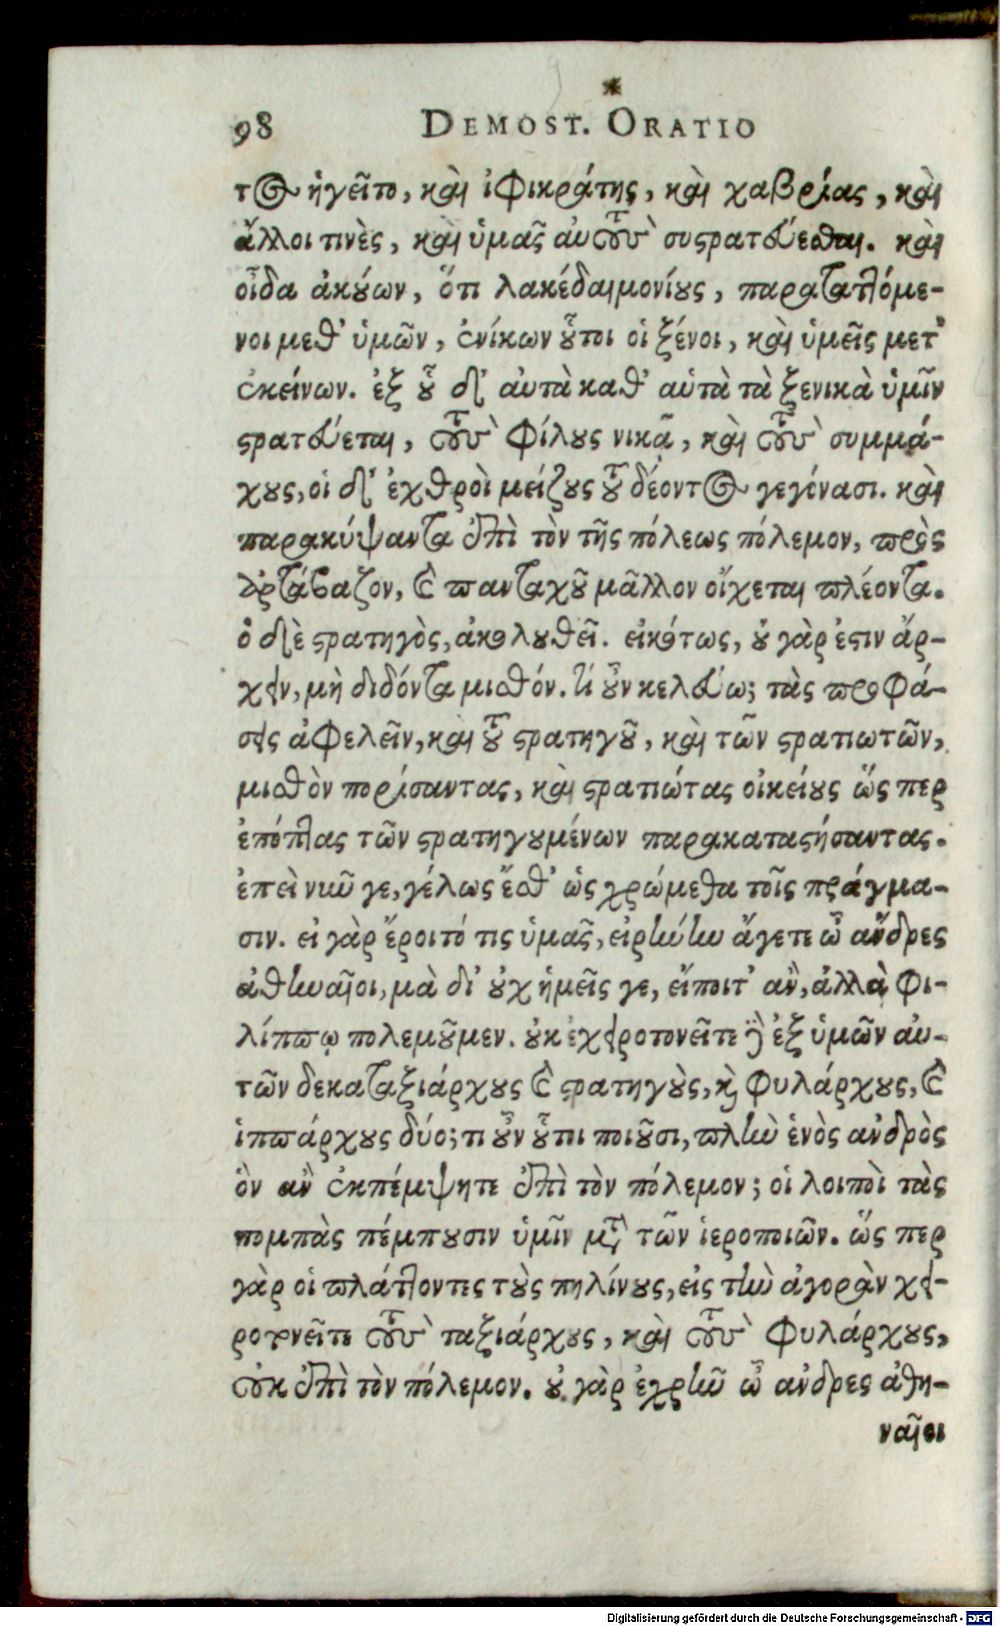 98 DEMOST. ORATIO
τος ἡγεῖτο, καὶ ἰφικράτης, καὶ χαβρίας, καὶ
ἄλλοι τινὲς, καὶ ὑμᾶς αὐτοὺς συστρατεύεσθαι. καὶ
οἶδα ἀκούων, ὅτι λακεδαιμονίους, παραταττόμε-
νοι μεθ' ὑμῶν, ἐνίκων οὗτοι οἱ ξένοι, καὶ ὑμεῖς μετ'
ἐκείνων. ἐξ οὗ δ' αὐτὰ καθ' αὑτὰ τὰ ξενικὰ ὑμῖν
στρατεύεται, τοὺς φίλους νικᾷ, καὶ τοὺς συμμά-
χους, οἱ δ' ἐχθροὶ μείζους τοῦ δέοντος γεγόνασι. καὶ
παρακύψαντα ἐπὶ τὸν τῆς πόλεως πόλεμον, πρὸς
ἀρτάβαζον, καὶ πανταχοῦ μᾶλλον οἴχεται πλέοντα.
ὁ δὲ στρατηγὸς, ἀκολουθεῖ. εἰκότως, οὐ γὰρ ἔστιν ἄρ-
χειν, μὴ διδόντα μισθόν. τί οὖν κελεύω; τὰς προφά-
σεις ἀφελεῖν, καὶ τοῦ στρατηγοῦ, καὶ τῶν στρατιωτῶν,
μισθὸν πορίσαντας, καὶ στρατιώτας οἰκείους ὥς περ
ἐπόπτας τῶν στρατηγουμένων παρακαταστήσαντας.
ἐπεὶ νῦν γε, γέλως ἔσθ' ὡς χρώμεθα τοῖς πράγμα-
σιν. εἰ γὰρ ἔροιτό τις ὑμᾶς, εἰρήνην ἄγετε ὦ ἄνδρες
ἀθηναῖοι, μὰ δί' οὐχ ἡμεῖς γε, εἴποιτ' ἂν, ἀλλὰ φι-
λίππῳ πολεμοῦμεν. οὐκ ἐχειροτονεῖτε δὲ ἐξ ὑμῶν αὐ-
τῶν δέκα ταξιάρχους καὶ στρατηγοὺς, καὶ φυλάρχους, καὶ
ἱππάρχους δύο; τί οὖν οὗτοι ποιοῦσι, πλὴν ἑνὸς ἀνδρὸς
ὃν ἂν ἐκπέμψητε ἐπὶ τὸν πόλεμον; οἱ λοιποὶ τὰς
πομπὰς πέμπουσιν ὑμῖν μετὰ τῶν ἱεροποιῶν. ὥς περ
γὰρ οἱ πλάττοντες τοὺς πηλίνους, εἰς τὴν ἀγορὰν χει-
ροτονεῖτε τοὺς ταξιάρχους, καὶ τοὺς φυλάρχους,
οὐκ ἐπὶ τὸν πόλεμον. οὐ γὰρ ἐχρῆν ὦ ἄνδρες ἀθη-
ναῖοι
Digitalisierung gefördert durch die Deutsche Forschungsgemeinschaft - DFG